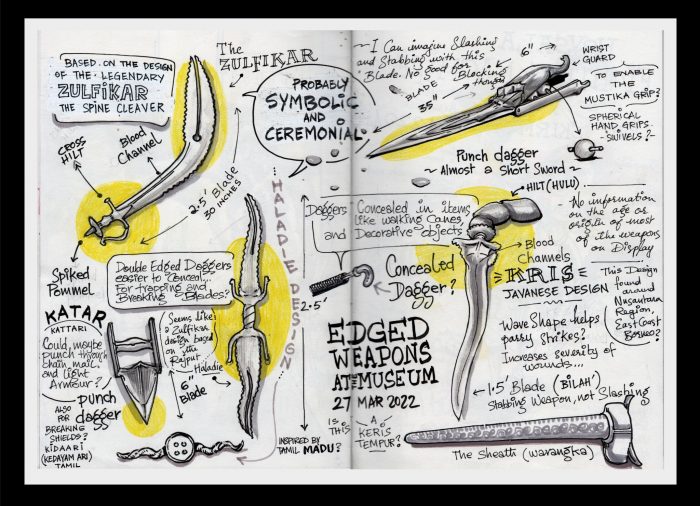 BASED ON THE DESIGN
OF THE LEGENDARY
ZULFIKAR
THE SPINE CLEAVER
The
ZULFIKAR
CROSS
HILT
Blood
Channel
2.5' Blade
30 INCHES
Spiked
Pommel
PROBABLY
SYMBOLIC
AND
CEREMONIAL
HALADIE DESIGN
Double Edged Daggers
easier to Conceal,
For trapping and
Breaking Blades?
2.5'
KATAR
KATTARI
Could, maybe
punch through
chain mail
and light
Armour?
punch
dagger
ALSO
FOR
BREAKING
SHIELDS?
KIDAARI
(KEDAYAM ARI)
TAMIL
6"
Blade
Seems like
a Zulfikar
design based
on the
Rajput
Haladie
INSPIRED BY
TAMIL MADU?
~ I Can imagine Slashing
and Stabbing with this
Blade. No good for Blocking
though
BLADE
35"
6"
WRIST
GUARD
TO ENABLE
THE
MUSTIKA GRIP?
SPHERICAL
HAND GRIPS
- SWIVELS?
Punch dagger
~ Almost a Short Sword ~
Daggers Concealed in items
like walking Canes
and Decorative objects
Concealed
Dagger?
HILT (HULU)
- No information
on the age or
origin of most
of the weapons
on Display
Blood
Channels
KRIS
JAVANESE DESIGN
This Design
found
around
Nusantara
Region,
East Coast
Borneo?
Wave Shape helps
parry Strikes?
Increases severity of
wounds...
1.5' Blade (BILAH)
Stabbing Weapon, not Slashing
EDGED
WEAPONS
AT THE MUSEUM
27 MAR 2022
IS
THIS
A
KERIS
TEMPUR?
The Sheath (warangka)